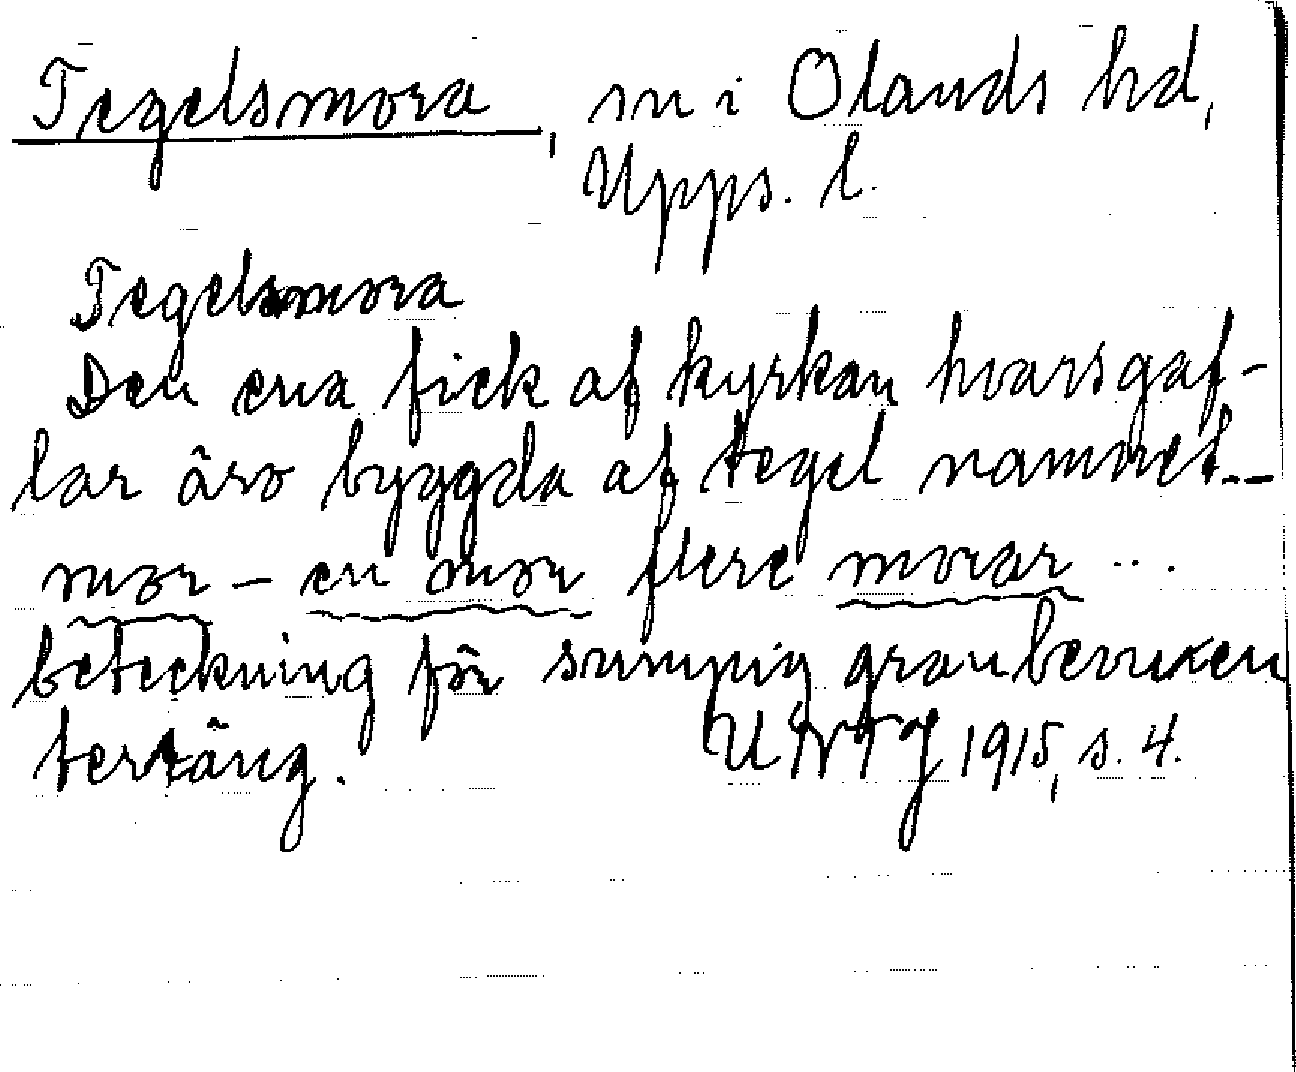 Tegelsmora, sn i Olands hd,
Upps. l.
Tegelsmora
Den ena fick af kyrkan hvars gaf-
lar äro byggda af tegel namnet --
mor - en mor flere morar ...
beteckning för sumpig granbevuxen
terräng. UNT 1915, s. 4.